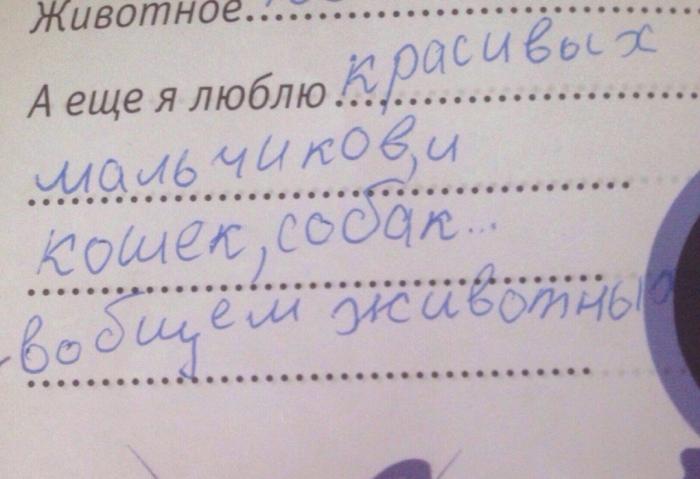 Животное
А еще я люблю красивых
мальчиков, и
кошек, собак...
вобщем животных